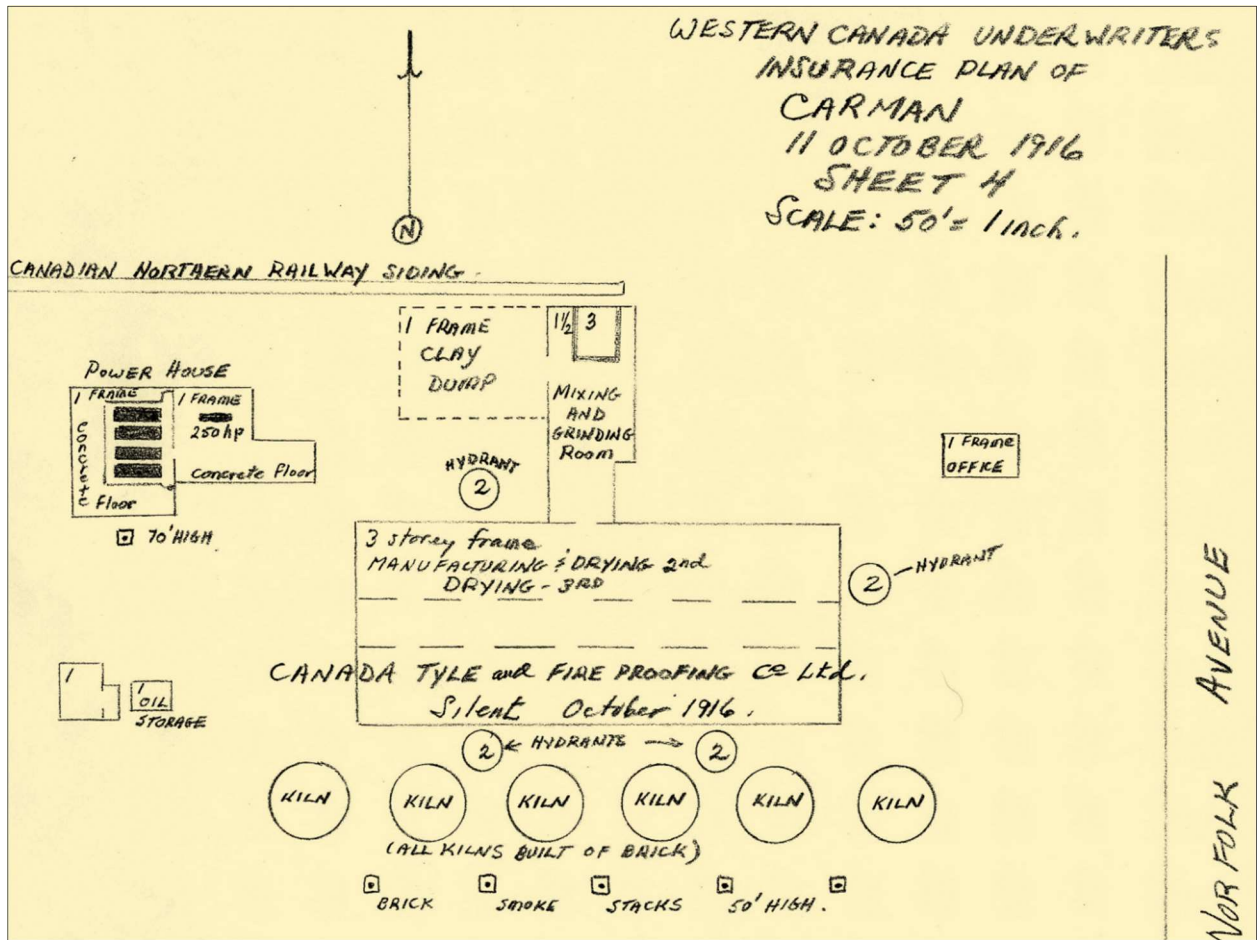 WESTERN CANADA UNDERWRITERS
INSURANCE PLAN OF
CARMAN
11 OCTOBER 1916
SHEET 4
SCALE: 50' = 1 inch.
N
CANADIAN NORTHERN RAILWAY SIDING
1 FRAME
CLAY
DUMP
1½ 3
MIXING
AND
GRINDING
Room
POWER HOUSE
1 FRAME
1 FRAME
250 hp
concrete Floor
concrete
Floor
70' HIGH
HYDRANT
2
1 FRAME
OFFICE
3 storey frame
MANUFACTURING & DRYING 2nd
DRYING - 3RD
2 HYDRANT
CANADA TYLE and FIRE PROOFING Co Ltd.
Silent October 1916.
1
1
OIL
STORAGE
2 HYDRANTS 2
KILN KILN KILN KILN KILN KILN
(ALL KILNS BUILT OF BRICK)
BRICK SMOKE STACKS 50' HIGH.
NORFOLK AVENUE